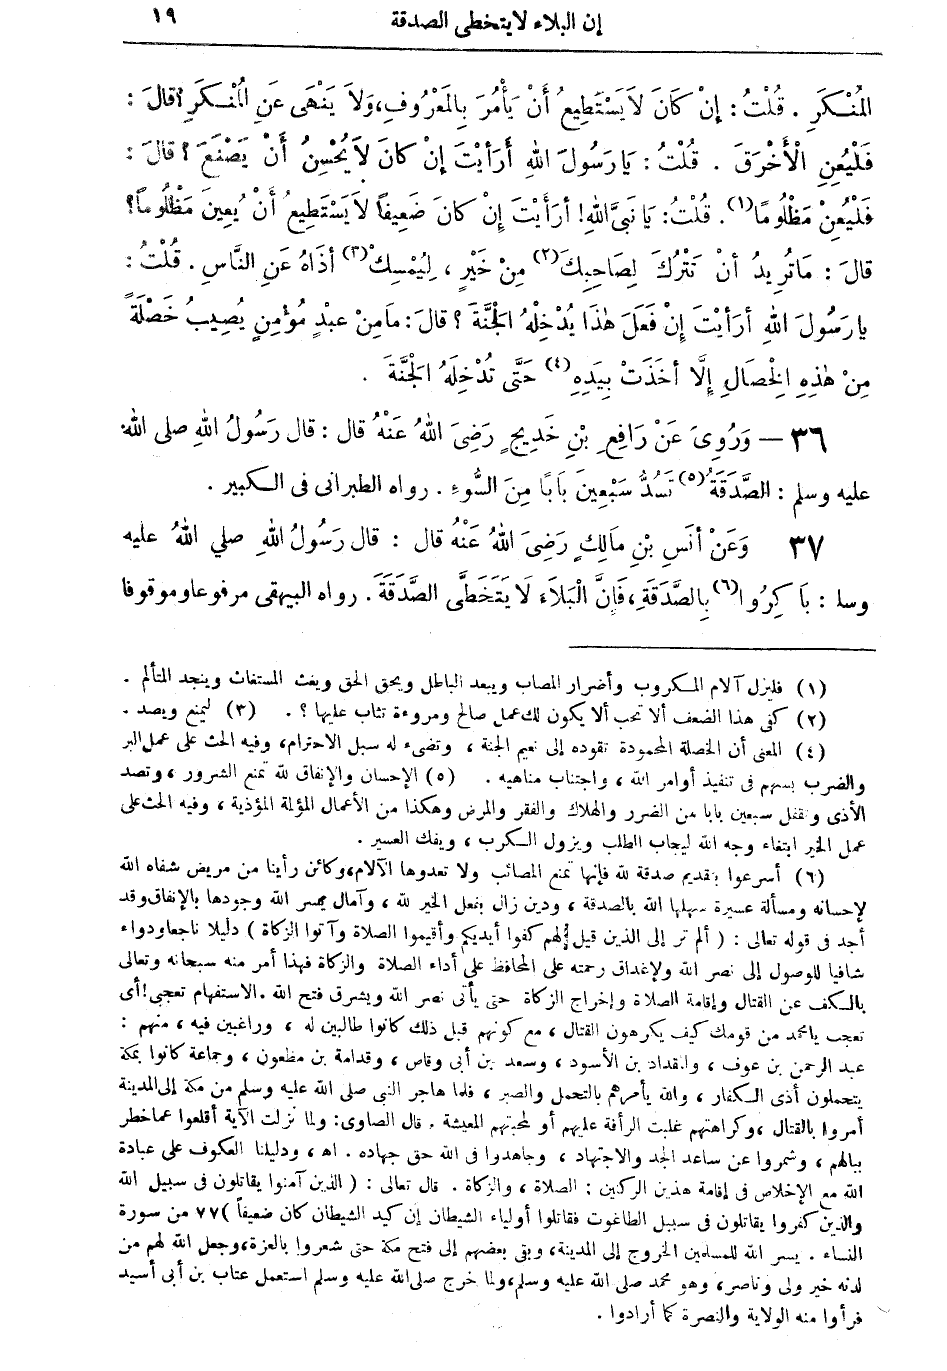 إن البلاء لا يتخطى الصدقة
١٩
الْمُنْكَرِ . قُلْتُ : إِنْ كَانَ لاَ يَسْتَطِيعُ أَنْ يَأْمُرَ بِالْمَعْرُوفِ، وَلاَ يَنْهَى عَنِ الْمُنْكَرِ ؟ قالَ :
فَلْيُعِنِ الْأَخْرَقَ . قُلْتُ : يَا رَسُولَ اللهِ أَرَأَيْتَ إِنْ كَانَ لاَ يُحْسِنُ أَنْ يَصْنَعَ ؟ قالَ :
فَلْيُعِنْ مَظْلُومًا (١) . قُلْتُ : يَا نَبِيَّ اللهِ ! أَرَأَيْتَ إِنْ كَانَ ضَعِيفاً لاَ يَسْتَطِيعُ أَنْ يُعِينَ مَظْلُوماً ؟
قالَ : مَا تُرِيدُ أَنْ تَتْرُكَ لِصَاحِبِكَ (٢) مِنْ خَيْرٍ ، لِيُمْسِكْ (٣) أَذَاهُ عَنِ النَّاسِ . قُلْتُ :
يا رَسُولَ اللهِ أَرَأَيْتَ إِنْ فَعَلَ هٰذَا يُدْخِلُهُ الْجَنَّةَ ؟ قالَ : مَا مِنْ عَبْدٍ مُؤْمِنٍ يُصِيبُ خَصْلَةً
مِنْ هٰذِهِ الْخِصَالِ إِلَّا أَخَذَتْ بِيَدِهِ (٤) حَتَّى تُدْخِلَهُ الْجَنَّةَ .
٣٦ — وَرُوِىَ عَنْ رَافِعِ بْنِ خَدِيجٍ رَضِىَ اللهُ عَنْهُ قال : قال رَسُولُ اللهِ صلى الله
عليه وسلم : الصَّدَقَةُ (٥) تَسُدُّ سَبْعِينَ بَابًا مِنَ السُّوءِ . رواه الطبرانى فى الكبير .
٣٧ وَعَنْ أَنَسِ بْنِ مَالِكٍ رَضِىَ اللهُ عَنْهُ قال : قال رَسُولُ اللهِ صلي اللهُ عليه
وسلم : بَاكِرُوا (٦) بِالصَّدَقَةِ ، فَإِنَّ الْبَلاَءَ لَا يَتَخَطَّى الصَّدَقَةَ . رواه البيهقى مرفوعا وموقوفا
(١) فليزل آلام المكروب وأضرار المصاب ويبعد الباطل ويحق الحق ويغث المستغاث وينجد المتألم .
(٢) كفى هذا الضعف ألا تحب ألا يكون لك عمل صالح ومروءة تثاب عليها ؟ . (٣) ليمنع ويصد .
(٤) المعنى أن الخصلة المحمودة تقوده إلى نعيم الجنة ، وتضىء له سبل الاحترام، وفيه الحث على عمل البر
والضرب بسهم فى تنفيذ أوامر الله ، واجتناب مناهيه . (٥) الإحسان والإنفاق لله تمنع الشرور ، وتصد
الأذى وتقفل سبعين بابا من الضرر والهلاك والفقر والمرض وهكذا من الأعمال المؤلمة المؤذية ، وفيه الحث على
عمل الخير ابتغاء وجه الله ليجاب الطلب ويزول الكرب ، ويفك العسير .
(٦) أسرعوا بتقديم صدقة لله فإنها تمنع المصائب ولا تعدوها الآلام، وكائن رأينا من مريض شفاه الله
لإحسانه ومسألة عسيرة سهلها الله بالصدقة ، ودين زال بفعل الخير لله ، وآمال يسر الله وجودها بالإنفاق وقد
أجد فى قوله تعالى : ( ألم تر إلى الذين قيل لهم كفوا أيديكم وأقيموا الصلاة وآتوا الزكاة ) دليلا ناجعا ودواء
شافيا للوصول إلى نصر الله ولإغداق رحمته على المحافظ على أداء الصلاة والزكاة فهذا أمر منه سبحانه وتعالى
بالكف عن القتال وإقامة الصلاة وإخراج الزكاة حتى يأتى نصر الله ويشرق فتح الله . الاستفهام تعجبى ! أى
تعجب يا محمد من قومك كيف يكرهون القتال ، مع كونهم قبل ذلك كانوا طالبين له ، وراغبين فيه ، منهم :
عبد الرحمن بن عوف ، والمقداد بن الأسود ، وسعد بن أبى وقاص ، وقدامة بن مظعون ، وجماعة كانوا بمكة
يتحملون أذى الكفار ، والله يأمرهم بالتحمل والصبر ، فلما هاجر النبى صلى الله عليه وسلم من مكة إلى المدينة
أمروا بالقتال ، وكراهتهم غلبت الرأفة عليهم أو لمحبتهم المعيشة . قال الصاوى : ولما نزلت الآية أقلعوا عما خطر
ببالهم ، وشمروا عن ساعد الجد والاجتهاد ، وجاهدوا فى الله حق جهاده . اهـ ، ودليلنا العكوف على عبادة
الله مع الإخلاص فى إقامة هذين الركنين : الصلاة ، والزكاة . قال تعالى : ( الذين آمنوا يقاتلون فى سبيل الله
والذين كفروا يقاتلون فى سبيل الطاغوت فقاتلوا أولياء الشيطان إن كيد الشيطان كان ضعيفاً ) ٧٧ من سورة
النساء . يسر الله للمسلمين الخروج إلى المدينة، وبقى بعضهم إلى فتح مكة حتى شعروا بالعزة، وجعل الله لهم من
لدنه خير ولى وناصر، وهو محمد صلى الله عليه وسلم، ولما خرج صلى الله عليه وسلم استعمل عتاب بن أبى أسيد
فرأوا منه الولاية والنصرة كما أرادوا .